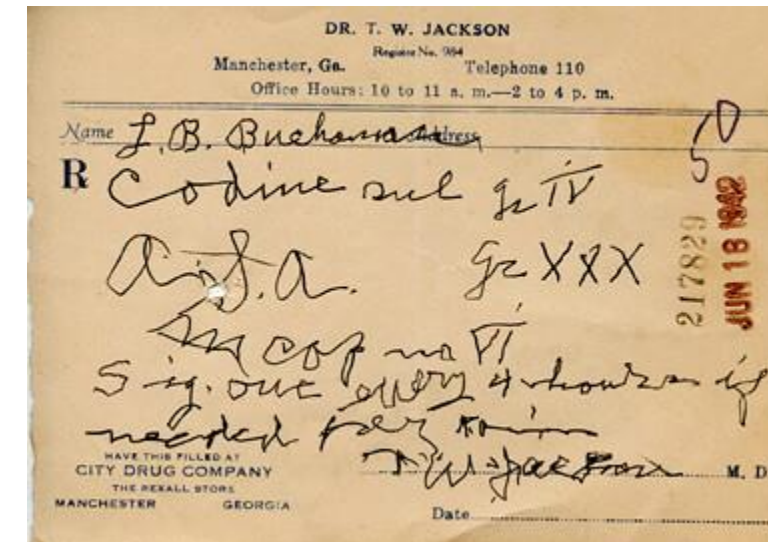 DR. T. W. JACKSON
Register No. 984
Manchester, Ga. Telephone 110
Office Hours: 10 to 11 a. m.—2 to 4 p. m.
Name L. B. Buchanan Address
50
R Codine sul gr IV
A.S.A. gr XXX
M cap no VI
Sig. one every 4 hours if
needed for pain
T W Jackson M. D
HAVE THIS FILLED AT
CITY DRUG COMPANY
THE REXALL STORE
MANCHESTER GEORGIA
Date
217829
JUN 18 1942